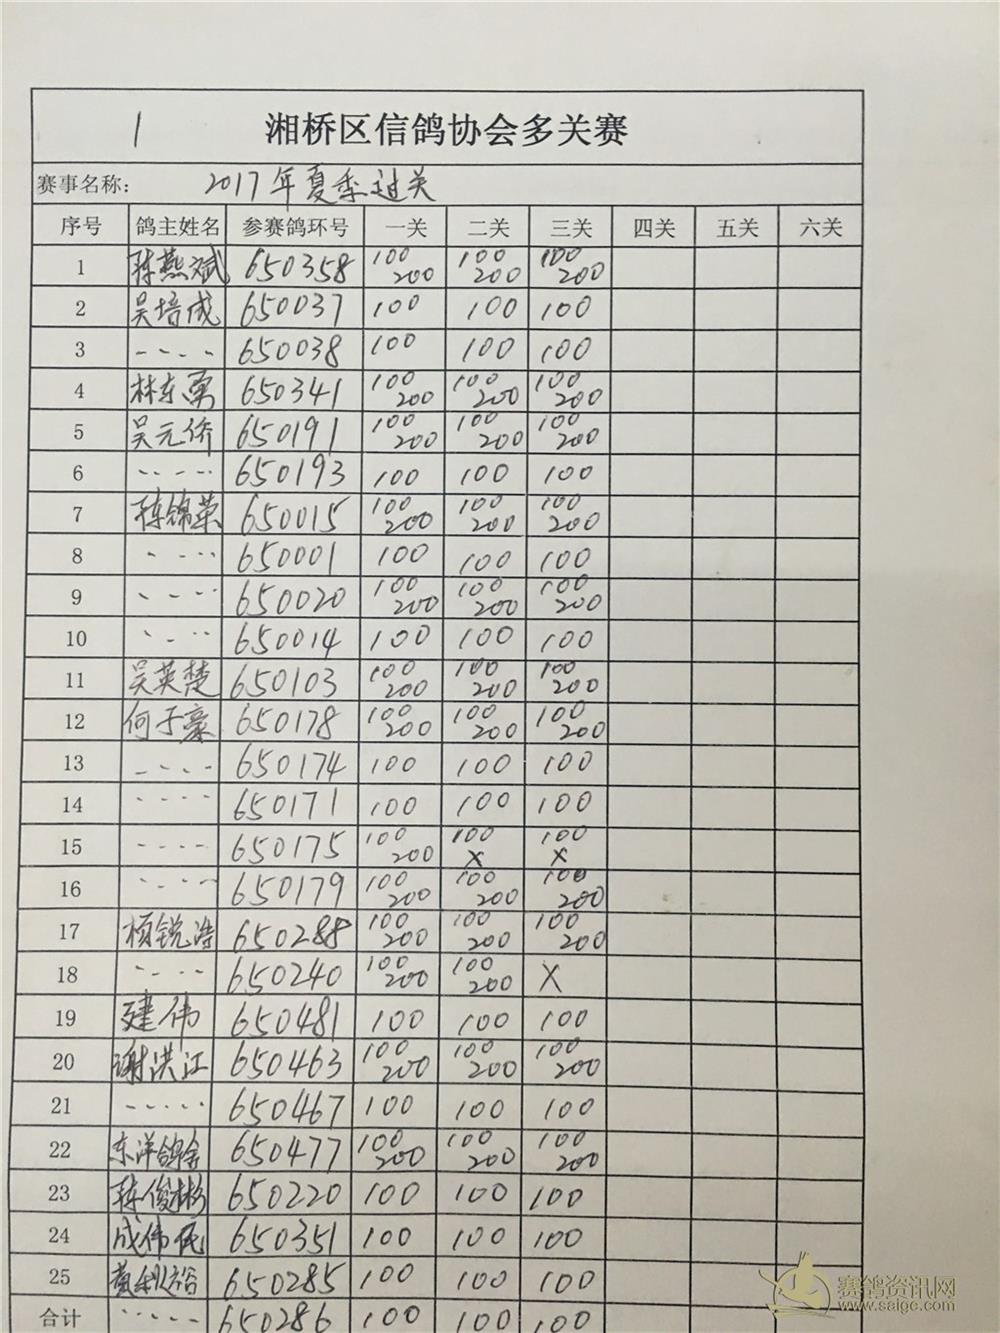 1 湘桥区信鸽协会多关赛
赛事名称: 2017年夏季过关
序号 鸽主姓名 参赛鸽环号 一关 二关 三关 四关 五关 六关
1 陈燕斌 650358 100 200 100 200 100 200
2 吴培成 650037 100 100 100
3 ---- 650038 100 100 100
4 林东勇 650341 100 200 100 200 100 200
5 吴元侨 650191 100 200 100 200 100 200
6 ---- 650193 100 100 100
7 陈锦荣 650015 100 200 100 200 100 200
8 ---- 650001 100 100 100
9 ---- 650020 100 200 100 200 100 200
10 ---- 650014 100 100 100
11 吴英楚 650103 100 200 100 200 100 200
12 何子豪 650178 100 200 100 200 100 200
13 ---- 650174 100 100 100
14 ---- 650171 100 100 100
15 ---- 650175 100 200 100 X 100 X
16 ---- 650179 100 200 100 200 100 200
17 杨锐浩 650288 100 200 100 200 100 200
18 ---- 650240 100 200 100 200 X
19 建伟 650481 100 100 100
20 谢洪江 650463 100 200 100 200 100 200
21 ----- 650467 100 100 100
22 东洋鸽舍 650477 100 200 100 200 100 200
23 陈俊彬 650220 100 100 100
24 成伟民 650351 100 100 100
25 黄 650285 100 100 100
合计 ----- 650286 100 100 100
赛鸽资讯网
www.saigc.com